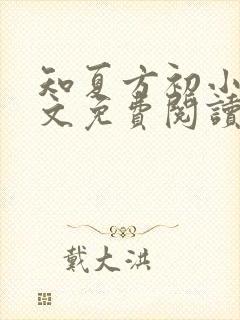 知夏方初小
文免費閱讀
戴大洪